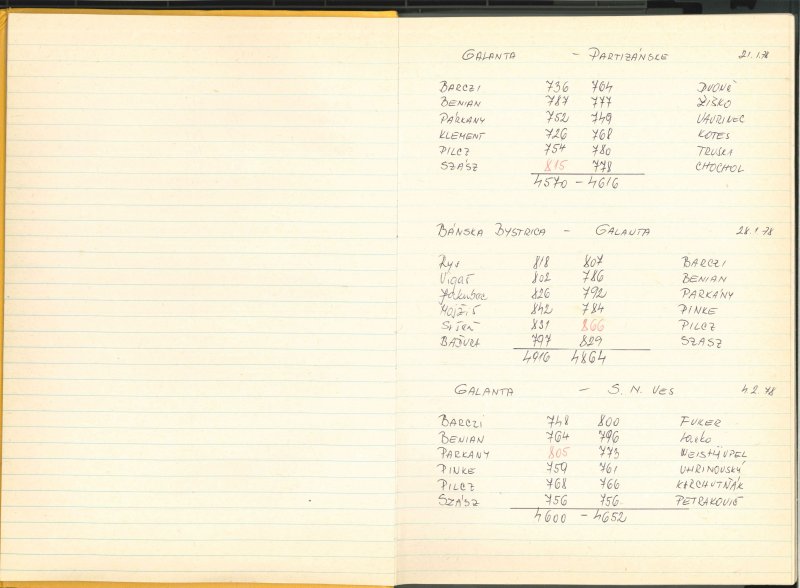 GALANTA - PARTIZÁNSKE 21.1.78
BARCZI 736 764
BENIAN 787 777 ŽIŠKO
PÁRKÁNY 752 749 VAVRINEC
KLEMENT 726 768 KOTES
PILCZ 754 780 TRUSKA
SZÁSZ 815 778 CHOCHOL
4570 - 4616
BÁNSKA BYSTRICA - GALANTA 28.1.78
Rys 818 807 BARCZI
Vigaš 802 786 BENIAN
Jakubec 826 792 PARKÁNY
Mojžiš 842 784 PINKE
831 866 PILCZ
BAŽURA 797 829 SZASZ
4916 4864
GALANTA - S. N. VES 4.2.78
BARCZI 748 800 FUKER
BENIAN 764 796
PARKANY 805 773
PINKE 759 761 UHRINOVSKÝ
PILCZ 768 766 KORCHUTŇÁK
SZÁSZ 756 756 PETRAKOVIČ
4600 - 4652